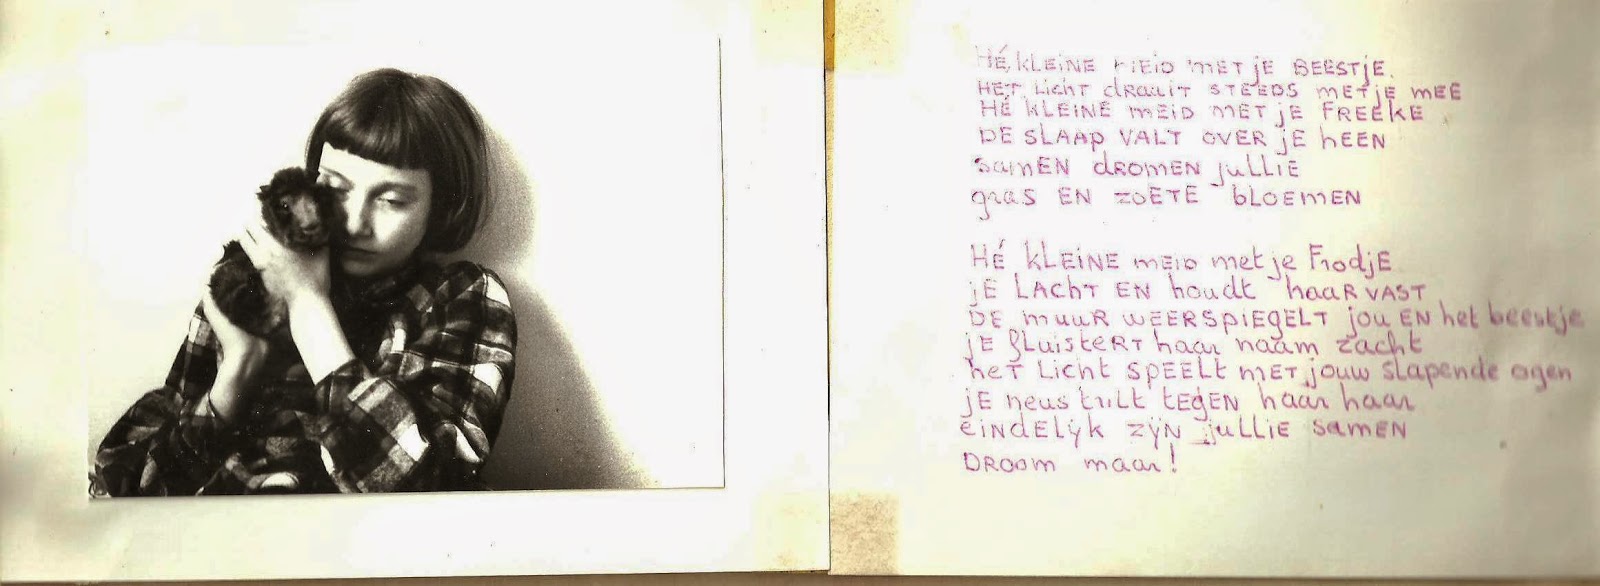 Hé, kleine meid met je beestje.
Het licht draait steeds met je mee
Hé kleine meid met je Freeke
De slaap valt over je heen
samen dromen jullie
gras en zoete bloemen
Hé kleine meid met je Frodje
je lacht en houdt haar vast
De muur weerspiegelt jou en het beestje
je fluistert haar naam zacht
het licht speelt met jouw slapende ogen
je neus trilt tegen haar haar
eindelijk zijn jullie samen
Droom maar!